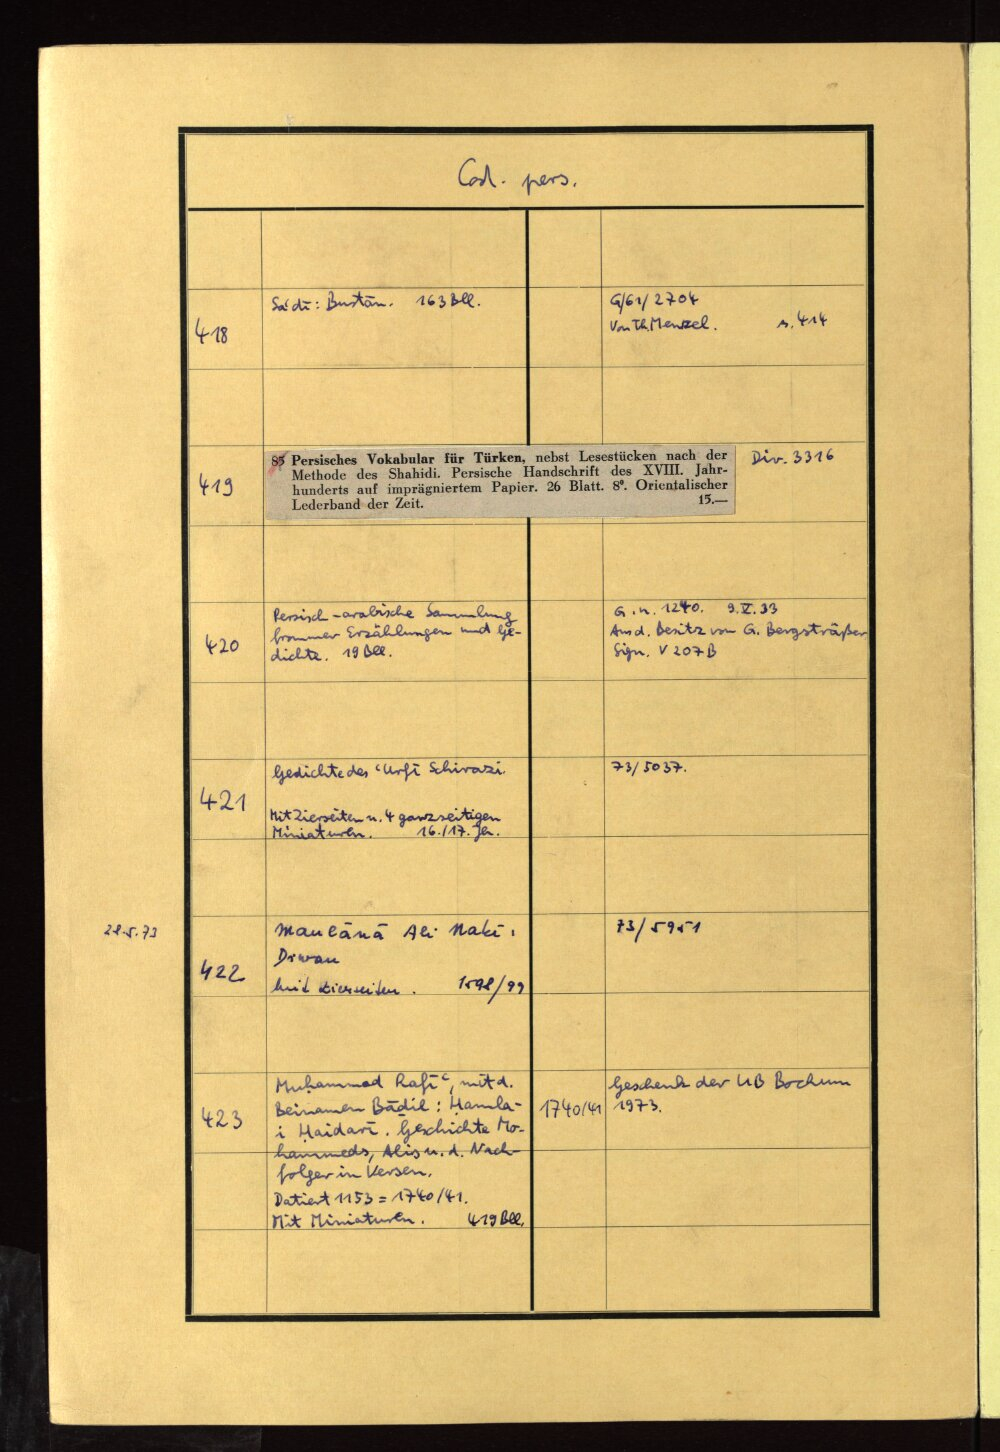 Cod. pers.
418
Sa'dī: Bustān. 163 Bll.
G/61/2704
Von Th. Menzel. s. 414
419
85 Persisches Vokabular für Türken, nebst Lesestücken nach der
Methode des Shahidi. Persische Handschrift des XVIII. Jahr-
hunderts auf imprägniertem Papier. 26 Blatt. 8°. Orientalischer
Lederband der Zeit. 15.—
Div. 3316
420
Persisch-arabische Sammlung
frommer Erzählungen und Ge-
dichte. 19 Bll.
G. n. 1240. 9.V.33
Aus d. Besitz von G. Bergsträßer
Sign. V 207 B
421
Gedichte des ʿUrfī Schirazi.
Mit Zierseiten u. 4 ganzseitigen
Miniaturen. 16./17. Jh.
73/5037.
28.5.73
422
Maulānā Ali Naki:
Diwan
mit Zierseiten. 1598/99
73/5951
423
Muḥammad Rafīʿ, mit d.
Beinamen Bādil: Ḥamla-
i Ḥaidarī. Geschichte Mo-
hammeds, Alis u. d. Nach-
folger in Versen.
Datiert 1153 = 1740/41.
Mit Miniaturen. 419 Bll.
1740/41
Geschenk der UB Bochum
1973.